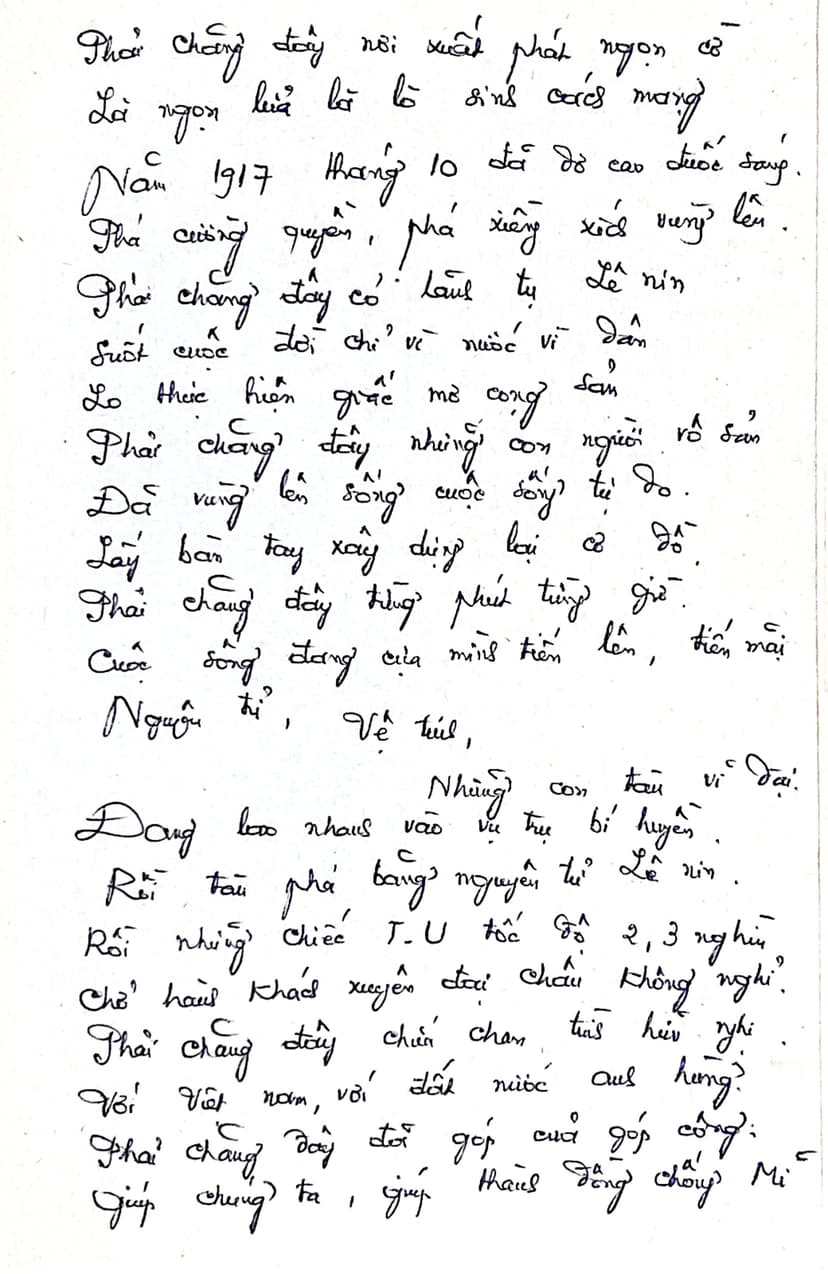 Phải chăng đây nơi xuất phát ngọn cờ
Là ngọn lửa là lò sinh cách mạng
Năm 1917 tháng 10 đã dơ cao đuốc sáng.
Phá cường quyền, phá xiềng xích vùng lên.
Phải chăng đây có lãnh tụ Lê nin
Suốt cuộc đời chỉ vì nước vì dân
Lo thực hiện giấc mơ cộng sản
Phải chăng đây những con người vô sản
Đã vùng lên sống cuộc sống tự do.
Lấy bàn tay xây dựng lại cơ đồ.
Phải chăng đây từng phút từng giờ.
Cuộc sống đang của mình tiến lên, tiến mãi
Nguyên tử, Vệ tinh,
Những con tàu vĩ đại.
Đang lao nhanh vào vụ trụ bí huyền.
Rồi tàu phá băng nguyên tử Lê nin.
Rồi những chiếc T-U tốc độ 2, 3 nghìn
Chở hành khách xuyên đại châu không nghỉ.
Phải chăng đây chứa chan tình hữu nghị.
Với Việt nam, với đất nước anh hùng?
Phải chăng đây đã góp của góp công:
Giúp chúng ta, giúp thành đồng chống Mĩ